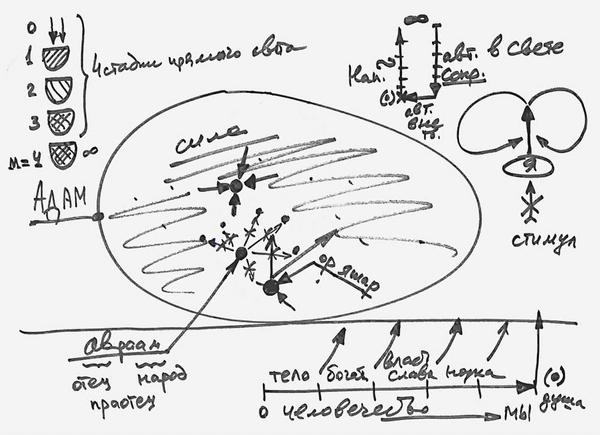 0
1
2
3
М=4 ∞
4 стадии прямого света
сила
АДАМ
ор яшар
∞
авт. в свете
сокр.
Нап.
(0)
авт.
вне
Я
стимул
авраам
отец народ
праотец
тело богат. власть
слава наука
0 человечество МЫ
(0)
душа